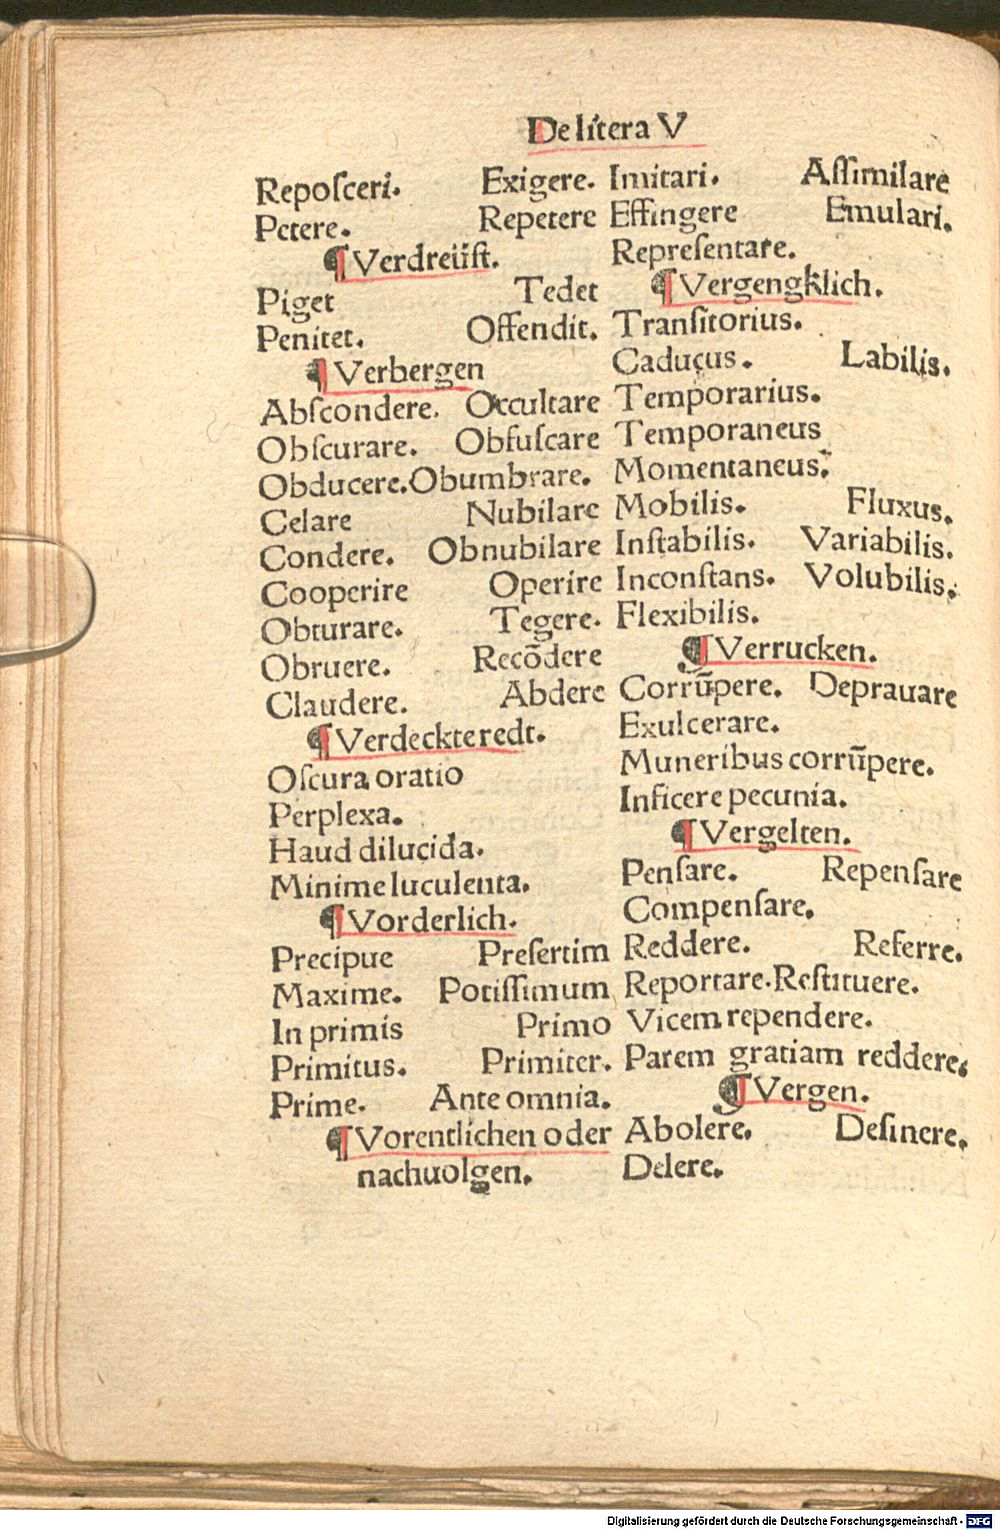 De litera V
Reposceri. Exigere.
Petere. Repetere
¶ Verdreüst.
Piget Tedet
Penitet. Offendit.
¶ Verbergen
Abscondere. Occultare
Obscurare. Obfuscare
Obducere. Obumbrare.
Celare Nubilare
Condere. Obnubilare
Cooperire Operire
Obturare. Tegere.
Obruere. Recōdere
Claudere. Abdere
¶ Verdeckte redt.
Oscura oratio
Perplexa.
Haud dilucida.
Minime luculenta.
¶ Vorderlich.
Precipue Presertim
Maxime. Potissimum
In primis Primo
Primitus. Primiter.
Prime. Ante omnia.
¶ Vorentlichen oder
nachuolgen.
Imitari. Assimilare
Effingere Emulari.
Representare.
¶ Vergengklich.
Transitorius.
Caducus. Labilis.
Temporarius.
Temporaneus
Momentaneus.
Mobilis. Fluxus.
Instabilis. Variabilis.
Inconstans. Volubilis.
Flexibilis.
¶ Verrucken.
Corrūpere. Deprauare
Exulcerare.
Muneribus corrūpere.
Inficere pecunia.
¶ Vergelten.
Pensare. Repensare
Compensare.
Reddere. Referre.
Reportare. Restituere.
Vicem rependere.
Parem gratiam reddere.
¶ Vergen.
Abolere. Desinere.
Delere.
Digitalisierung gefördert durch die Deutsche Forschungsgemeinschaft - DFG